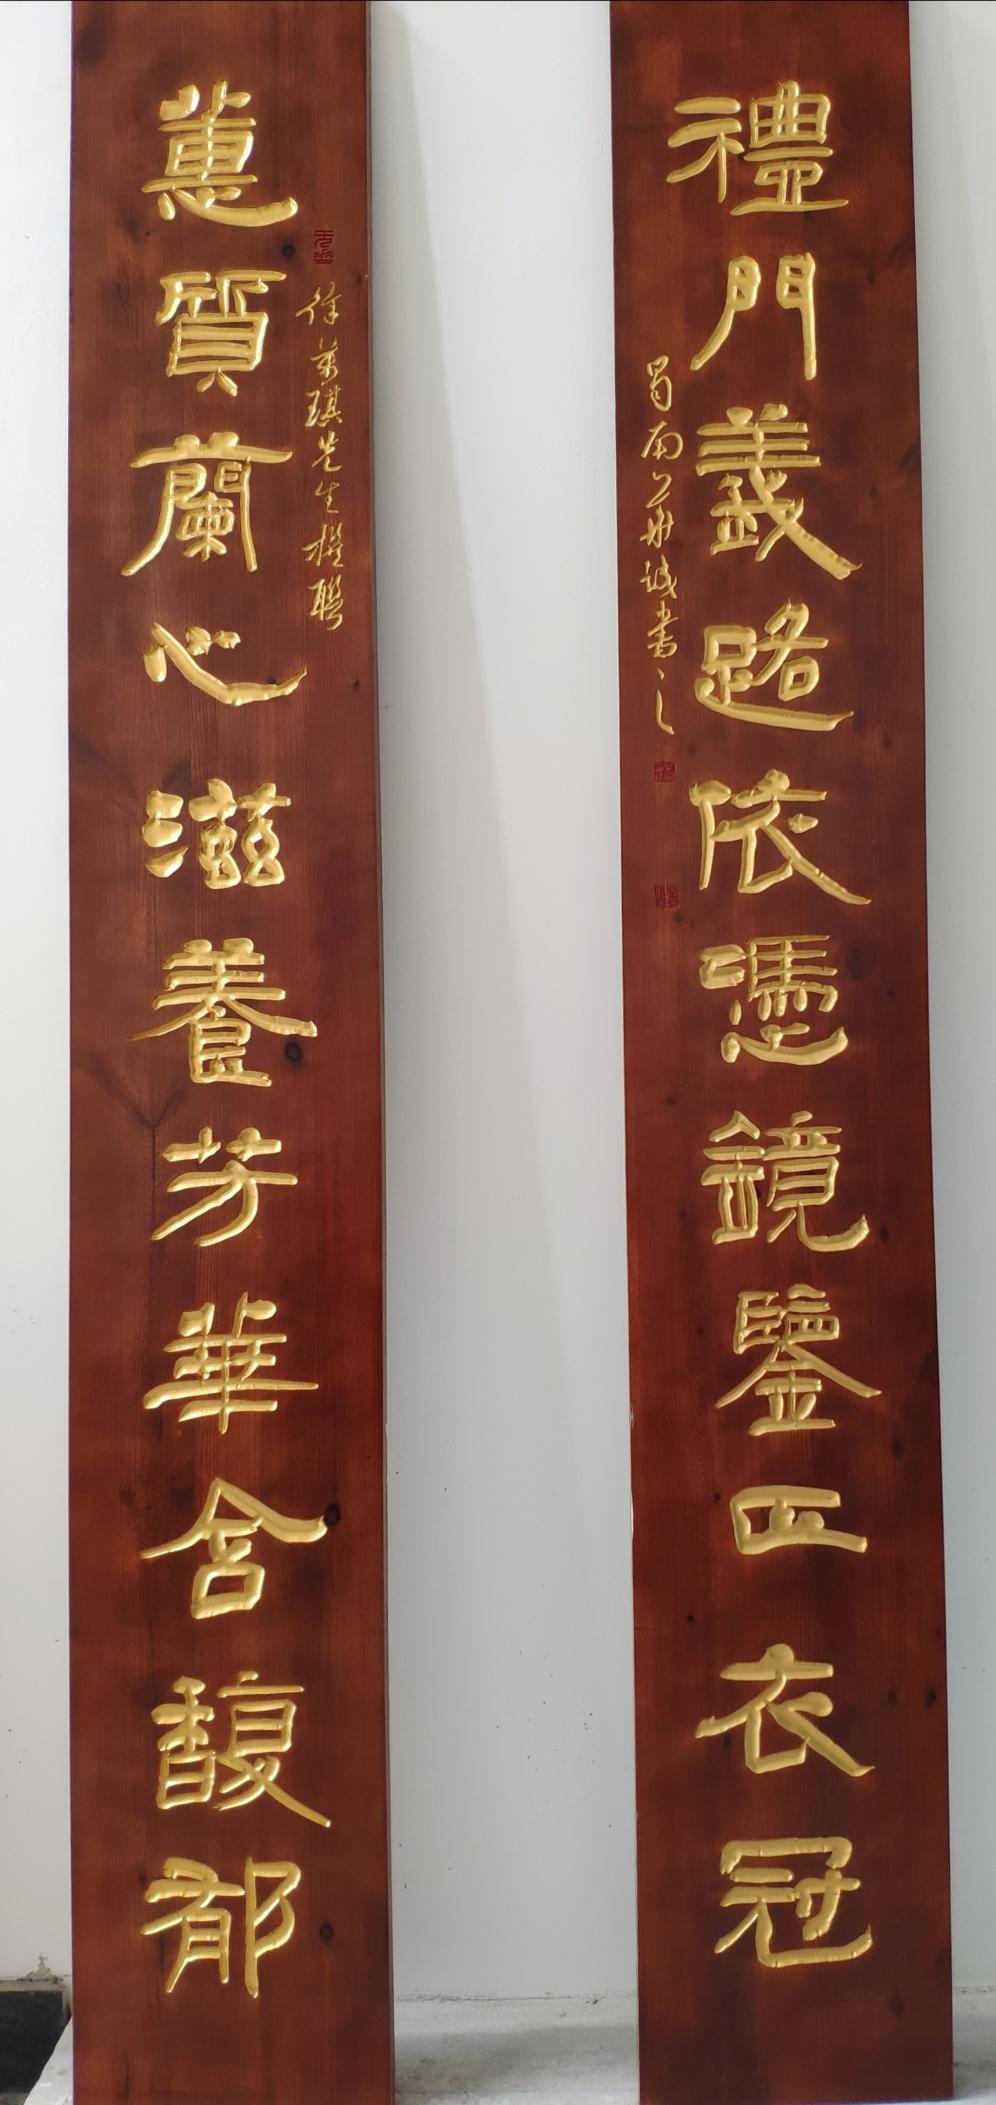 蕙質蘭心滋養芳華含馥郁
徐萬琪先生撰聯
禮門義路依憑鏡鑒正衣冠
蜀南 誠書之